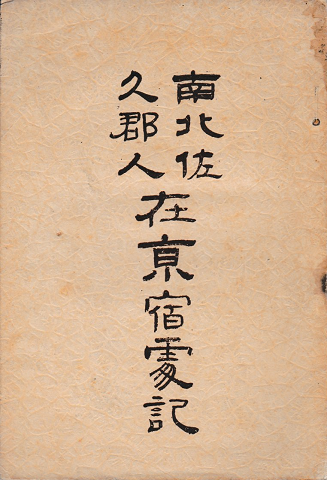 南北佐
久郡人
在京宿處記